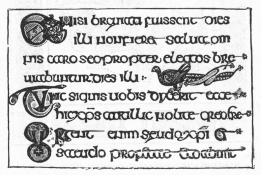 Et nisi breuiati fuissent dies
illi non fieret salua om
nis caro sed propter electos bre
uiabuntur dies illi :
Tunc si quis uobis dixerit ecce
hic xps aut illic nolite credere
Surgent enim seudo xpi &
seudo